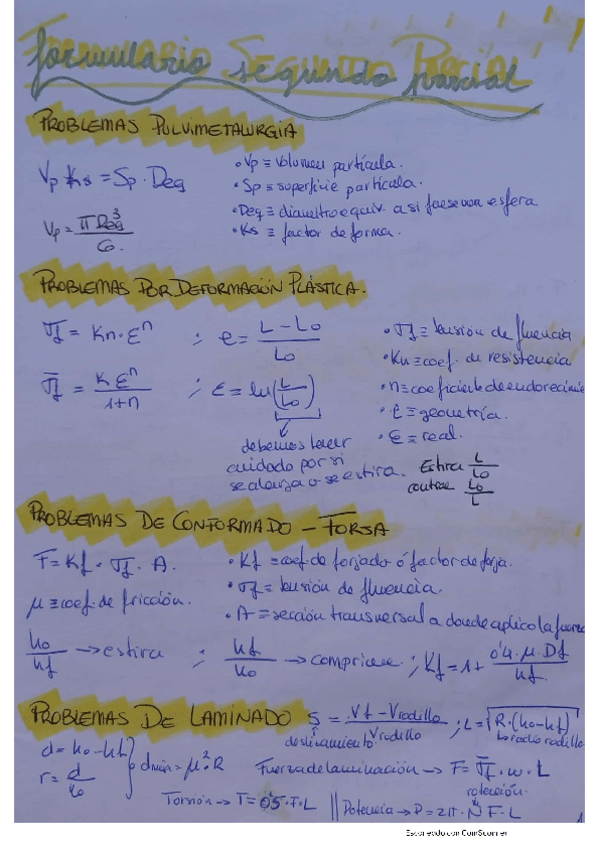 Formulario segundo parcial
PROBLEMAS PULVIMETALURGIA
Vp Ks = Sp · Deq
Vp = π Deq³ / 6.
• Vp ≡ volumen partícula.
• Sp ≡ superficie partícula.
• Deq ≡ diametro equiv. a si fuese una esfera
• Ks ≡ factor de forma.
PROBLEMAS POR DEFORMACIÓN PLÁSTICA.
σf = Kn · ε^n ; e = (L - Lo) / Lo
σ̄f = K ε^n / 1+n ; ε = ln(L/Lo)
debemos tener
cuidado por si
se alarga o se estira.
Estira L/Lo
contrae Lo/L
• σf ≡ tensión de fluencia
• Kn ≡ coef. de resistencia
• n ≡ coeficiente de endurecimie
• ε ≡ geometría.
• ε ≡ real.
PROBLEMAS DE CONFORMADO - FORJA
F = Kf · σf · A.
μ ≡ coef. de fricción.
• Kf ≡ coef. de forjado ó factor de forja.
• σf ≡ tensión de fluencia.
• A ≡ sección transversal a donde aplico la fuerza
ho/hf → estira ; hf/ho → comprime ; Kf = 1 + 0'4 · μ · Df / hf.
PROBLEMAS DE LAMINADO S = Vf - Vrodillo / Vrodillo ; L = √R·(ho-hf)
deslizamiento
radio rodillo
d = ho - hf
r = d/ho
} dmax = μ² · R
Fuerza de laminación → F = σ̄f · w · L
rotación.
Torsión → T = 0'5 · F · L || Potencia → P = 2π · N F · L
Escaneado con CamScanner